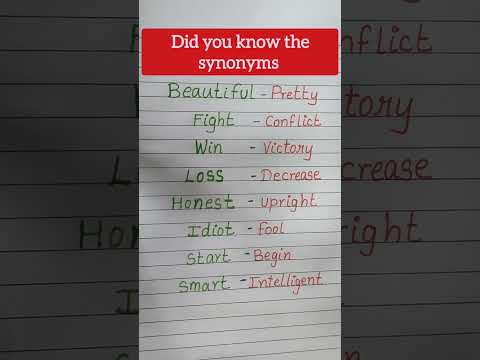 Did you know the
synonyms
Beautiful - Pretty
Fight - Conflict
Win - Victory
Loss - Decrease
Honest - upright
Idiot - fool
Start - Begin
Smart - Intelligent